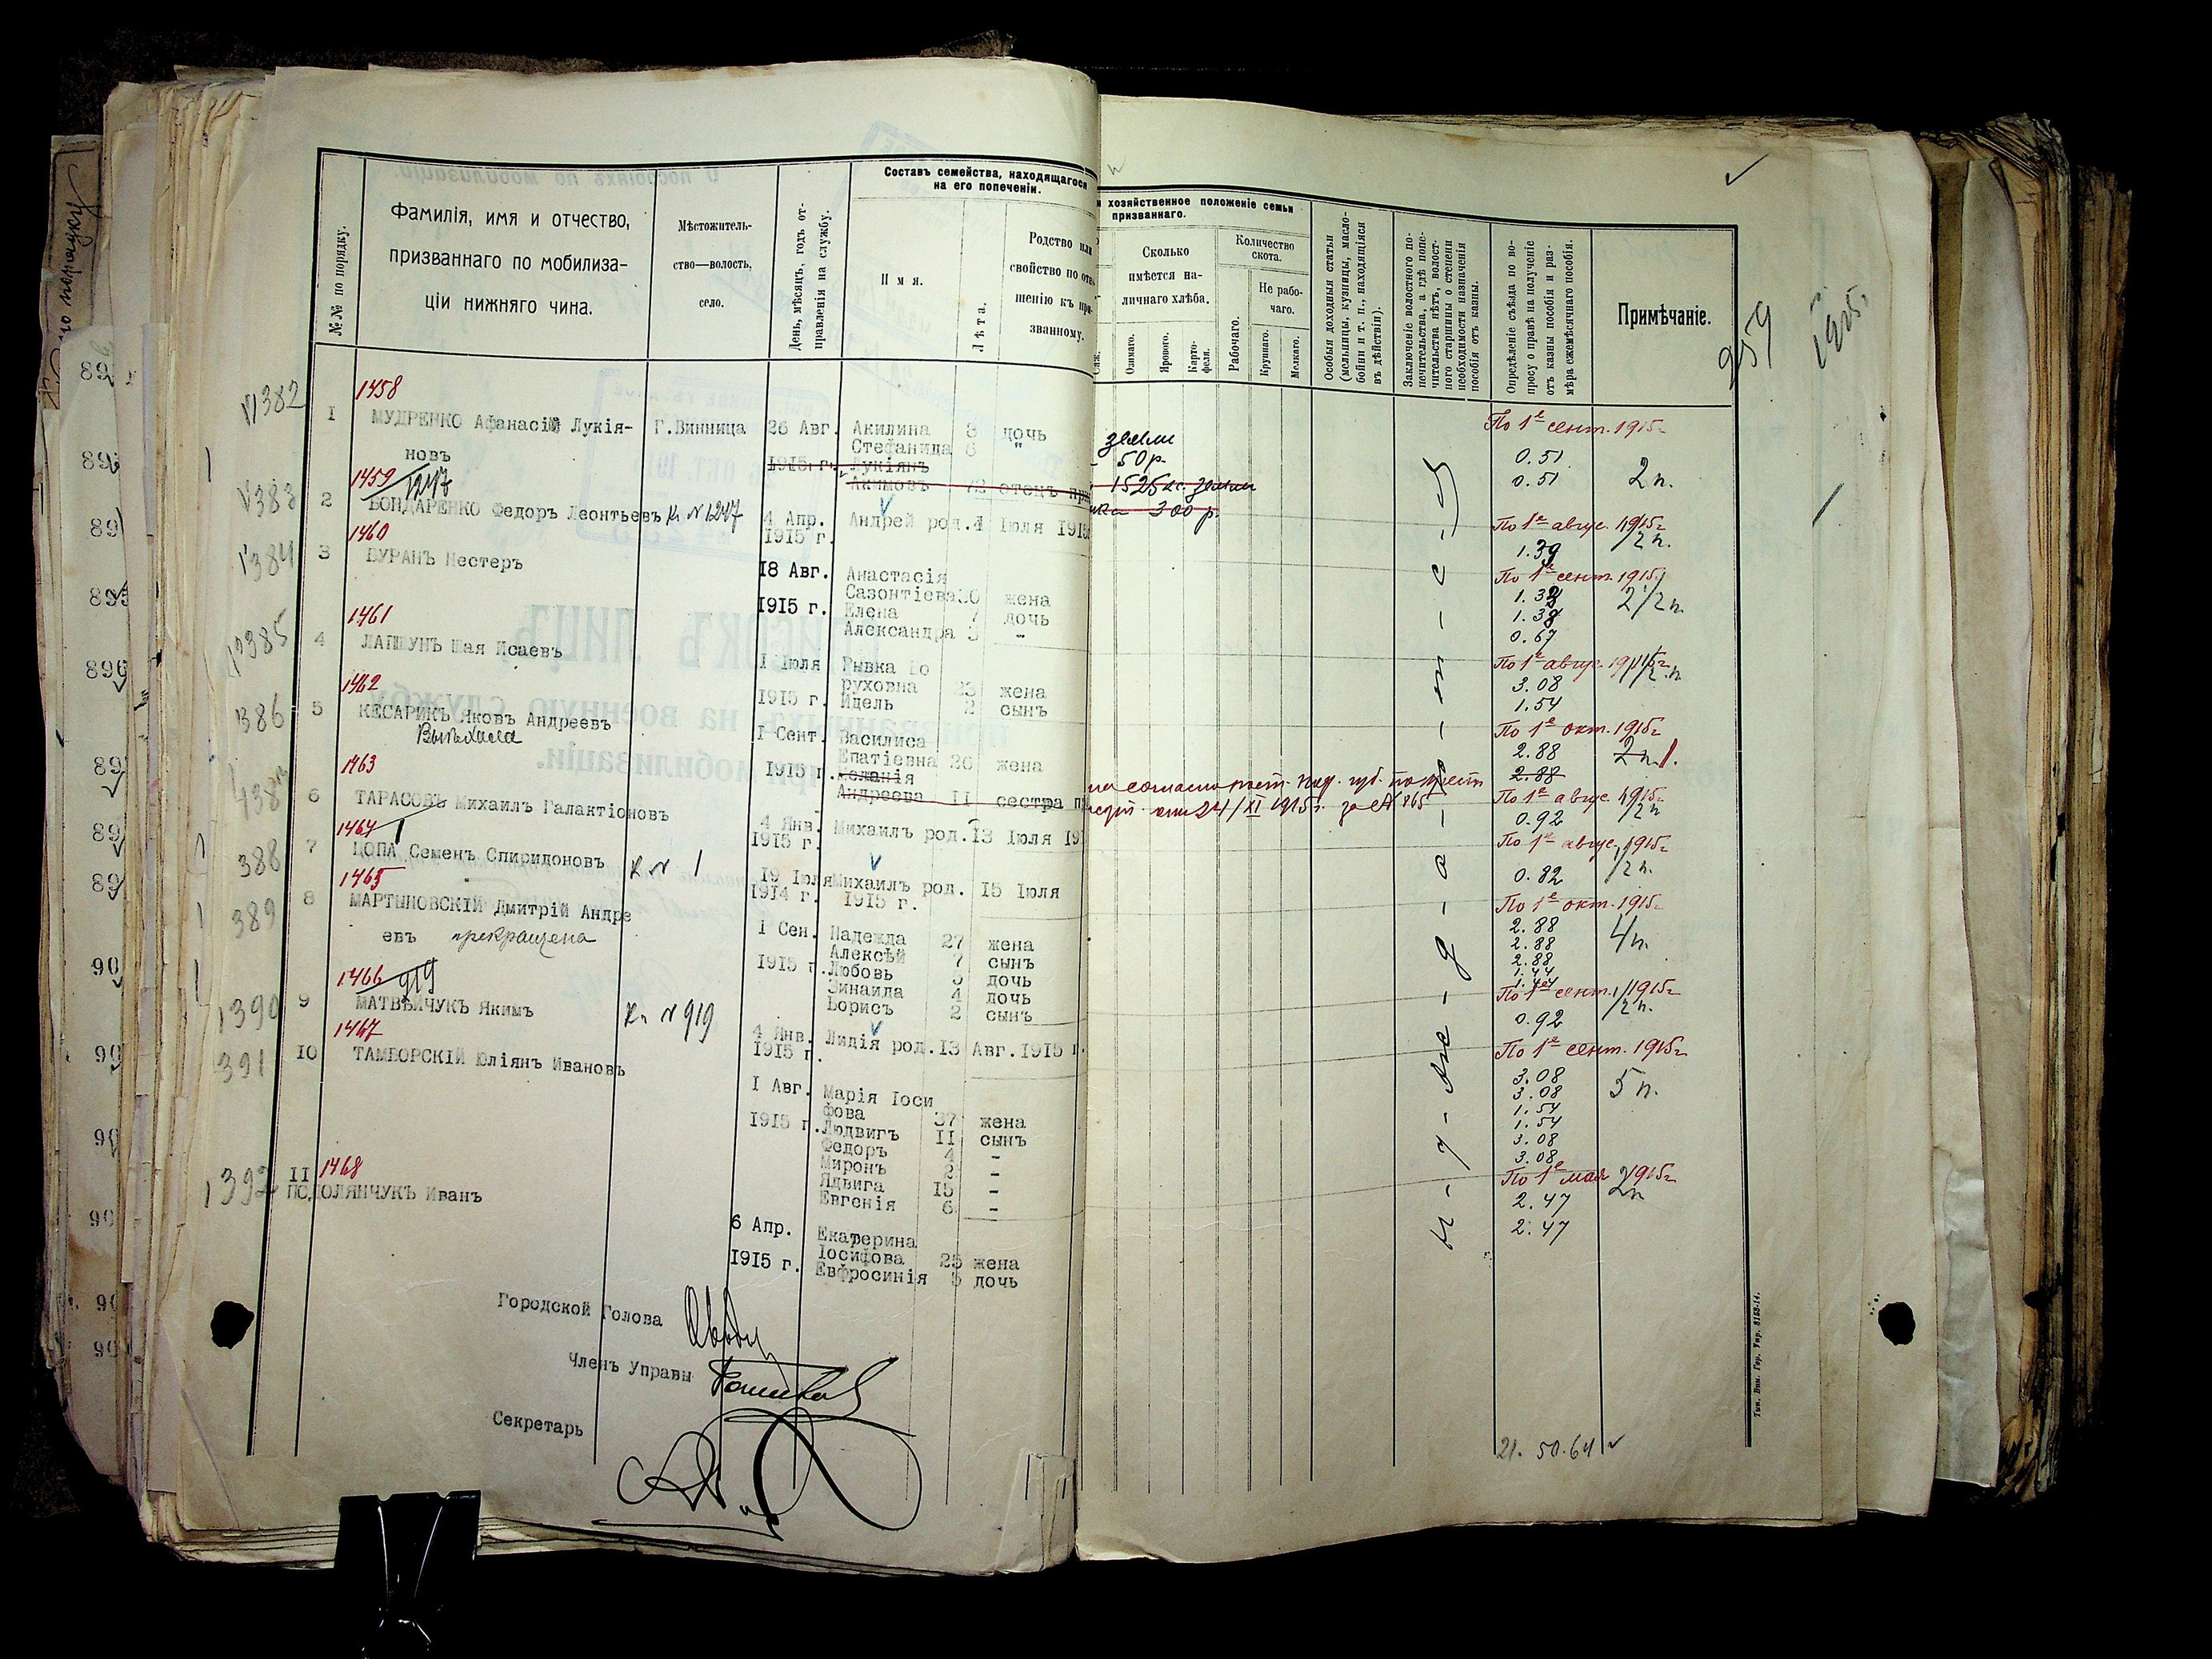 Фамилія, имя и отчество,
призваннаго по мобилиза-
ціи нижняго чина.
№№ по порядку.
Мѣстожитель-
ство—волость,
село.
День, мѣсяцъ, годъ от-
правленія на службу.
Составъ семейства, находящагося
на его попеченіи.
Имя.
Лѣта.
Родство или
свойство по отно-
шенію къ при-
званному.
и хозяйственное положеніе семьи
призваннаго.
Сколько
имѣется на-
личнаго хлѣба.
Озимаго.
Ярового.
Карто-
феля.
Количество
скота.
Рабочаго.
Не рабо-
чаго.
Крупнаго.
Мелкаго.
Особыя доходныя статьи
(мельницы, кузницы, масло-
бойни и т. п., находящіяся
въ дѣйствіи).
Заключеніе волостного по-
печительства, а гдѣ попе-
чительства нѣтъ, волост-
ного старшины о степени
необходимости назначенія
пособія отъ казны.
Опредѣленіе съѣзда по во-
просу о правѣ на полученіе
отъ казны пособія и раз-
мѣра ежемѣсячнаго пособія.
Примѣчаніе.
259
1915г.
1382
1458
1 МУДРЕНКО Афанасій Лукія- Г.Винница 26 Авг. Акилина 8 дочь
новъ 1915 г. Стефанида 6 "
Лукіянъ
Акимовъ 72 отецъ при
земли
50 р.
1525 кс. земли
300 р.
По 1е сент. 1915г
0.51
0.51
2 п.
1383
1459 1247
2 БОНДАРЕНКО Федоръ Леонтьевъ К № 1247 4 Апр. Андрей род.4 Іюля 1915
1915 г.
По 1е авгус. 1915г
1.39
1/2 п.
1384
1460
3 БУРАНЪ Нестеръ 18 Авг. Анастасія
Сазонтіева 30 жена
1915 г. Елена 7 дочь
Александра 3 -
По 1е сент. 1915г
1.33
1.38
0.67
2 1/2 п.
1385
1461
4 ЛАПШУНЪ Шая Исаевъ 1 Іюля Рывка Бо
руховна 23 жена
1915 г. Идель 2 сынъ
По 1е авгус. 1915г
3.08
1.54
1 1/2 п
1386
1462
5 КЕСАРИКЪ Яковъ Андреевъ 1 Сент. Василиса
Выѣхала
Епатіевна 26 жена
1915 г. Меланія
Андреева 11 сестра п
По 1е окт. 1915г
2.88
2.88
2 п 1.
от 24/XI 1915г. за № 865
438
1463
6 ТАРАСОВЪ Михаилъ Галактіоновъ 4 Янв. Михаилъ род.13 Іюля 19
1915 г.
По 1е авгус 1915г
0.92
1/2 п
388
1464 1
7 ЦОПА Семенъ Спиридоновъ К № 1 19 Іюля Михаилъ род. 15 Іюля
1914 г. 1915 г.
По 1е авгус. 1915г
0.82
1/2 п.
389
1465
8 МАРТЫНОВСКІЙ Дмитрій Андре 1 Сен. Надежда 27 жена
евъ прекращена
Алексѣй 7 сынъ
1915 г. Любовь 5 дочь
Зинаида 4 дочь
Борисъ 2 сынъ
По 1е окт. 1915г
2.88
2.88
2.88
1.44
1.44
4 п.
1390
1466 919
9 МАТВѢЙЧУКЪ Якимъ К № 919 4 Янв. Лидія род.13 Авг.1915 г.
1915 г.
По 1е сент. 1915г
0.92
1/2 п.
391
1467
10 ТАМБОРСКІЙ Юліянъ Ивановъ 1 Авг. Марія Іоси
фова 37 жена
1915 г. Людвигъ 11 сынъ
Федоръ 4 -
Миронъ 2 -
Ядвига 15 -
Евгенія 6 -
По 1е сент. 1915г
3.08
3.08
1.54
1.54
3.08
3.08
5 п.
1392
1468
11 ПОДОЛЯНЧУКЪ Иванъ 6 Апр. Екатерина
Іосифова 25 жена
1915 г. Евфросинія 5 дочь
По 1е мая 1915г
2.47
2.47
2 п
Н-у-ж-д-а-ю-т-с-я
Городской Голова
Членъ Управы
Секретарь
21. 50.64
Тип. Вин. Гор. Упр. 3153-14.